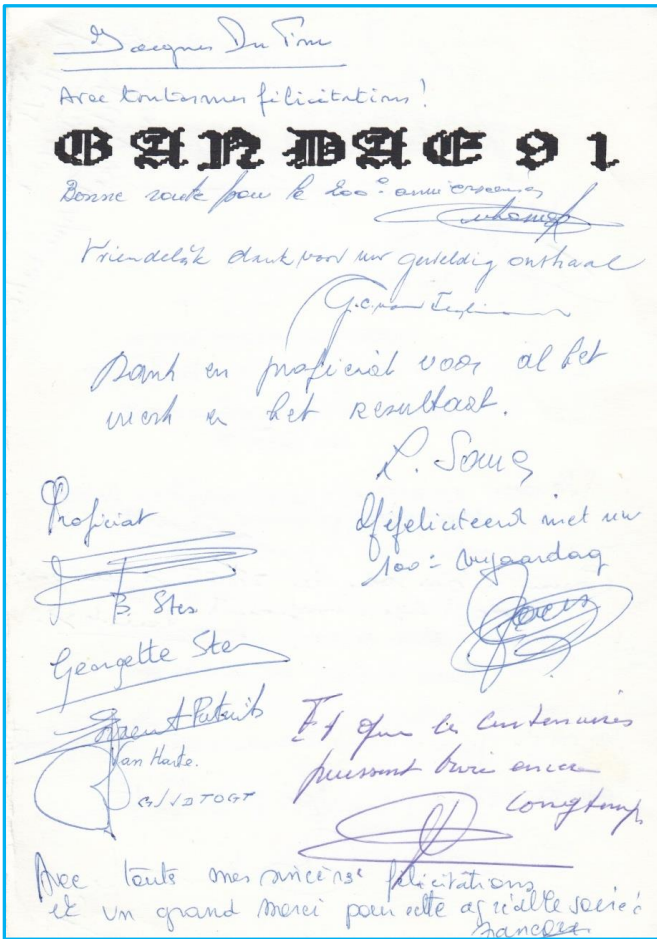 Jacques Du
Avec toutes mes félicitations!
GANDAE 91
Bonne route pour le 200e anniversaire
Vriendelijk dank voor uw geweldig onthaal
G.C. van
Dank en proficiat voor al het
werk en het resultaat.
Proficiat
gefeliciteerd met uw
100e verjaardag
B. Stes
Georgette Stes
Van Harte.
Et que les centenaires
puissent vivre encore
longtemps
Avec toute mes sincères félicitations
et un grand merci pour cette agréable soirée